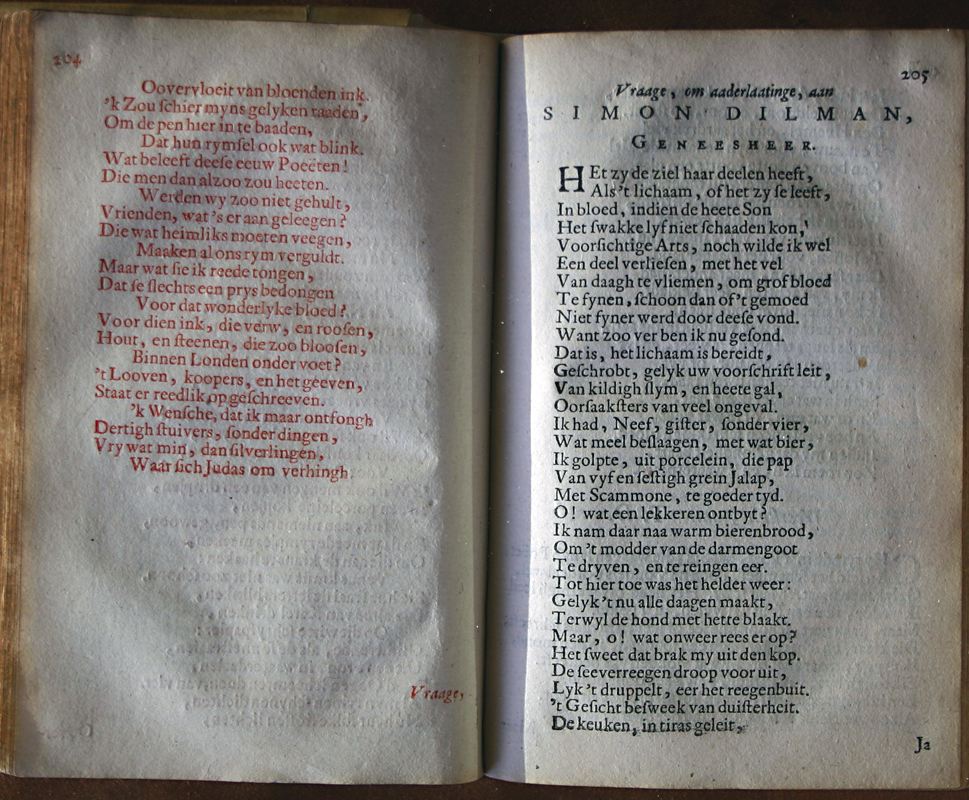 204
Oovervloeit van bloenden ink.
'k Zou ſchier myns gelyken raaden,
Om de pen hier in te baaden,
Dat hun rymſel ook wat blink.
Wat beleeft deeſe eeuw Poeëten!
Die men dan alzoo zou heeten.
Werden wy zoo niet gehult,
Vrienden, wat 's er aan geleegen?
Die wat heimliks moeten veegen,
Maaken al ons rym verguldt.
Maar wat ſie ik reede tongen,
Dat ſe ſlechts een prys bedongen
Voor dat wonderlyke bloed?
Voor dien ink, die verw, en rooſen,
Hout, en ſteenen, die zoo blooſen,
Binnen Londen onder voet?
't Looven, koopers, en het geeven,
Staat er reedlik op geſchreeven.
'k Wenſche, dat ik maar ontfongh
Dertigh ſtuivers, ſonder dingen,
Vry wat min, dan ſilverlingen,
Waar ſich Judas om verhingh.
Vraage,
205
Vraage, om aaderlaatinge, aan
SIMON DILMAN,
GENEESHEER.
HEt zy de ziel haar deelen heeft,
Als 't lichaam, of het zy ſe leeft,
In bloed, indien de heete Son
Het ſwakke lyf niet ſchaaden kon,
Voorſichtige Arts, noch wilde ik wel
Een deel verlieſen, met het vel
Van daagh te vliemen, om grof bloed
Te fynen, ſchoon dan of 't gemoed
Niet fyner werd door deeſe vond.
Want zoo ver ben ik nu geſond.
Dat is, het lichaam is bereidt,
Geſchrobt, gelyk uw voorſchrift leit,
Van kildigh ſlym, en heete gal,
Oorſaakſters van veel ongeval.
Ik had, Neef, giſter, ſonder vier,
Wat meel beſlaagen, met wat bier,
Ik golpte, uit porcelein, die pap
Van vyf en ſeſtigh grein Jalap,
Met Scammone, te goeder tyd.
O! wat een lekkeren ontbyt?
Ik nam daar naa warm bierenbrood,
Om 't modder van de darmengoot
Te dryven, en te reingen eer.
Tot hier toe was het helder weer:
Gelyk 't nu alle daagen maakt,
Terwyl de hond met hette blaakt.
Maar, o! wat onweer rees er op?
Het ſweet dat brak my uit den kop.
De ſeeverreegen droop voor uit,
Lyk 't druppelt, eer het reegenbuit.
't Geſicht beſweek van duiſterheit.
De keuken, in tiras geleit,
Ja